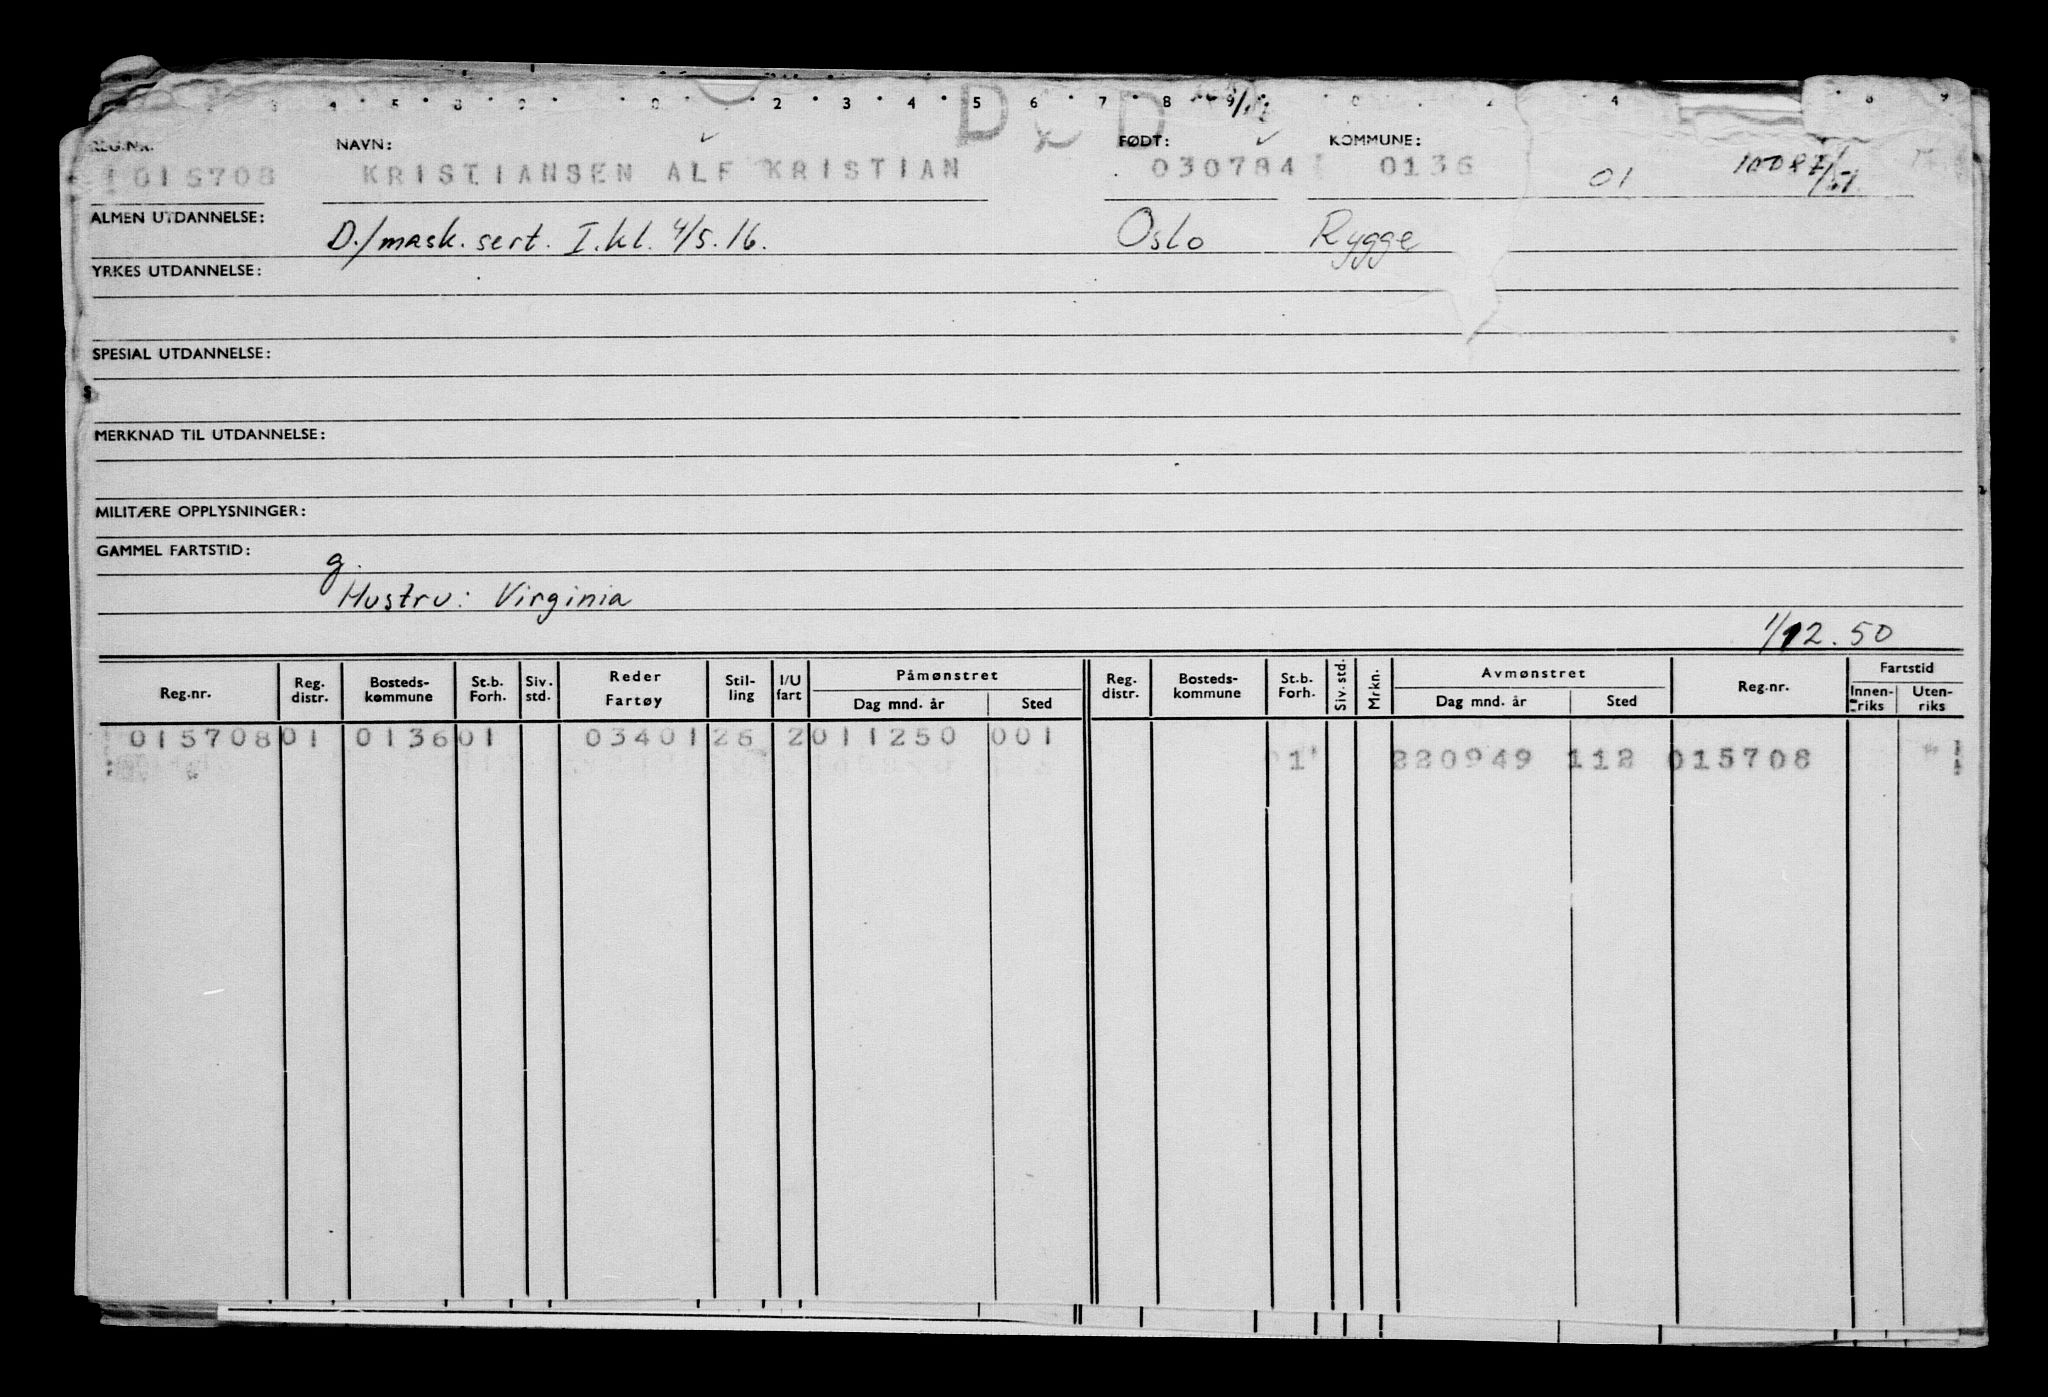 3 4 5 8 9 0 2 3 4 5 6 7 8 9 4 8 9
DØD
REG.NR. NAVN: FØDT: KOMMUNE:
015708 KRISTIANSEN ALF KRISTIAN 030784 0136 01
ALMEN UTDANNELSE: D./mask. sert. I. kl. 4/5. 16. Oslo Rygge
YRKES UTDANNELSE:
SPESIAL UTDANNELSE:
MERKNAD TIL UTDANNELSE:
MILITÆRE OPPLYSNINGER:
GAMMEL FARTSTID:
g.
Hustru: Virginia
1/12. 50
Reg.nr. Reg. distr. Bosteds- kommune St.b. Forh. Siv. std. Reder Fartøy Stil- ling I/U fart Påmønstret Dag mnd. år Sted Reg. distr. Bosteds- kommune St.b. Forh. Siv. std. Mrkn. Avmønstret Dag mnd. år Sted Reg.nr. Fartstid Innen- riks Uten- riks
015708 01 0136 01 03401 26 2 011250 001
1 220949 112 015708